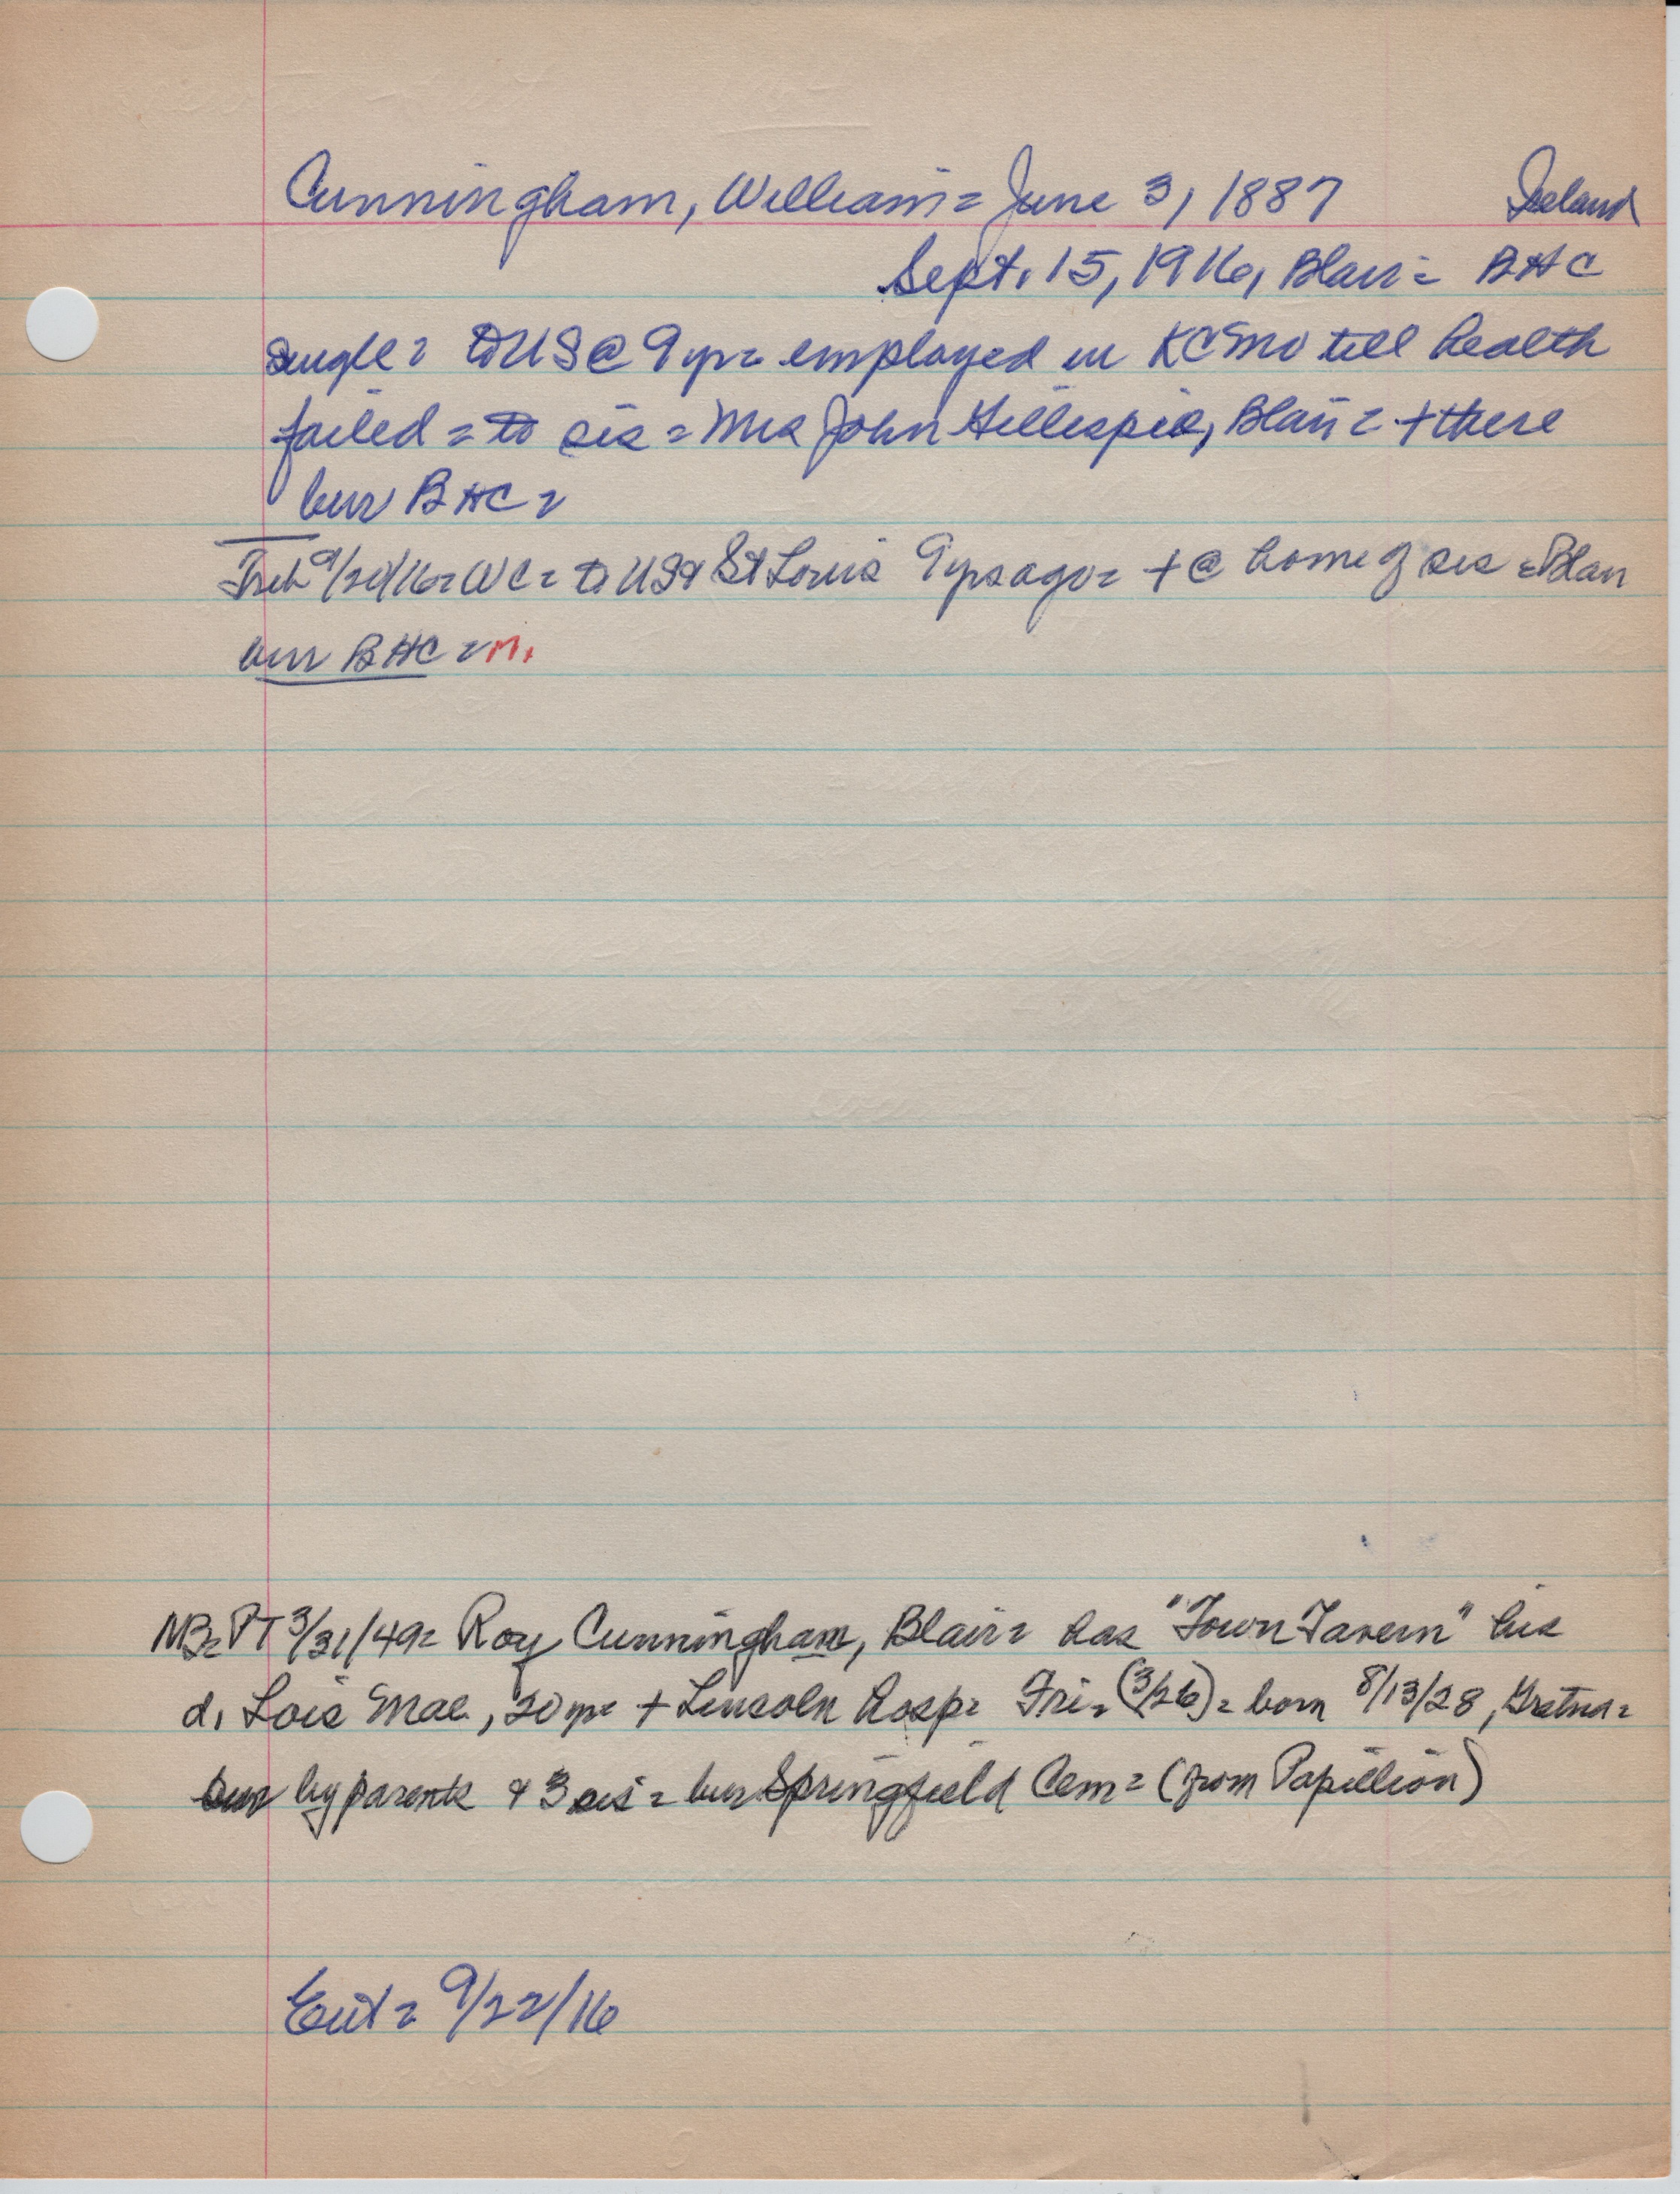 Cunningham, William = June 3, 1887 Ireland
Sept. 15, 1916, Blair = BHC
single = to US @ 9 yr = employed in KC Mo till health
failed = to sis = Mrs John Gillespie, Blair = + there
bur BHC =
Trib 9/20/16 = WC = to US & St Louis 9 yrs ago = + @ home of sis = Blair
bur BHC = M.
NB = PT 3/31/49 = Roy Cunningham, Blair = has "Town Tavern" his
d. Lois Mae, 20 yr = + Lincoln hosp = Fri = (3/26) = born 8/13/28, Gretna =
sur by parents & 3 sis = bur Springfield Cem = (from Papillion)
Ent = 9/22/16